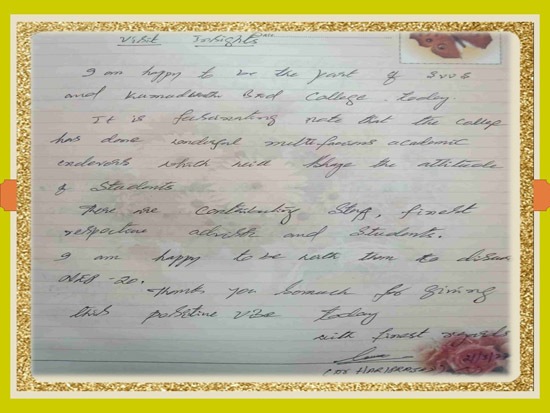 Visit Insights
I am happy to be the part of SVVS
and Kumadwathi B.ed College today.
It is fascinating note that the college
has done wonderful multifarious academic
endevors which will shape the attitude
of Students
There are contributing Staff, finest
and Students.
I am happy to be with them to discuss
NEP-20.
Thank you so much for giving
this positive vibe today
with finest regards